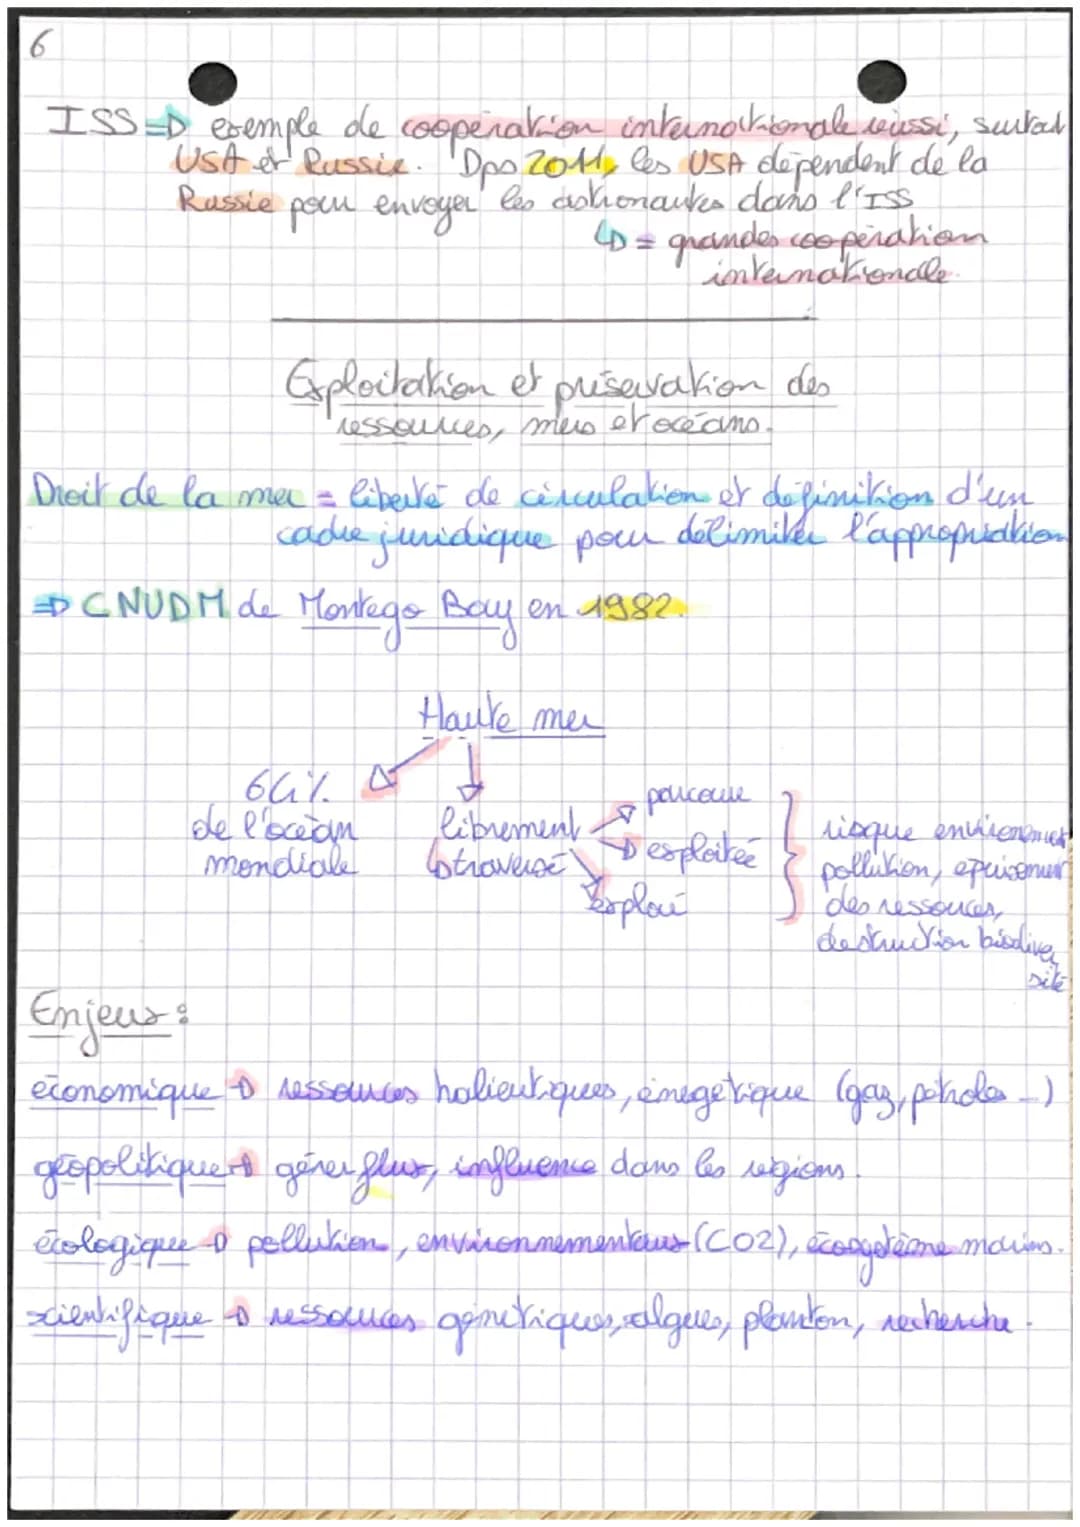 6
ISS => exemple de coopération internationale réussi, surtout
USA et Russie. Dps 2011, les USA dépendent de la
Russie pour envoyer les astronautes dans l'ISS
↳ = grandes coopération
internationale.
Exploitation et préservation des
ressources, mers et océans.
Droit de la mer = liberté de circulation et définition d'un
cadre juridique pour délimiter l'appropriation
=> CNUDM de Montego Bay en 1982.
Haute mer
64% de l'océan mondiale
librement
↳ traversé
parcourue
exploitée
exploré
risque environement
pollution, épuisement
des ressources,
destruction biodiver
sité
Enjeux :
économique → ressources halieutiques, énegétique (gaz, pétrole ...)
géopolitique → gérer flux, influence dans les régions.
écologique → pollution, environnementaux (CO2), écosystème marins.
scientifique → ressources génétiques, algues, plancton, recherche.